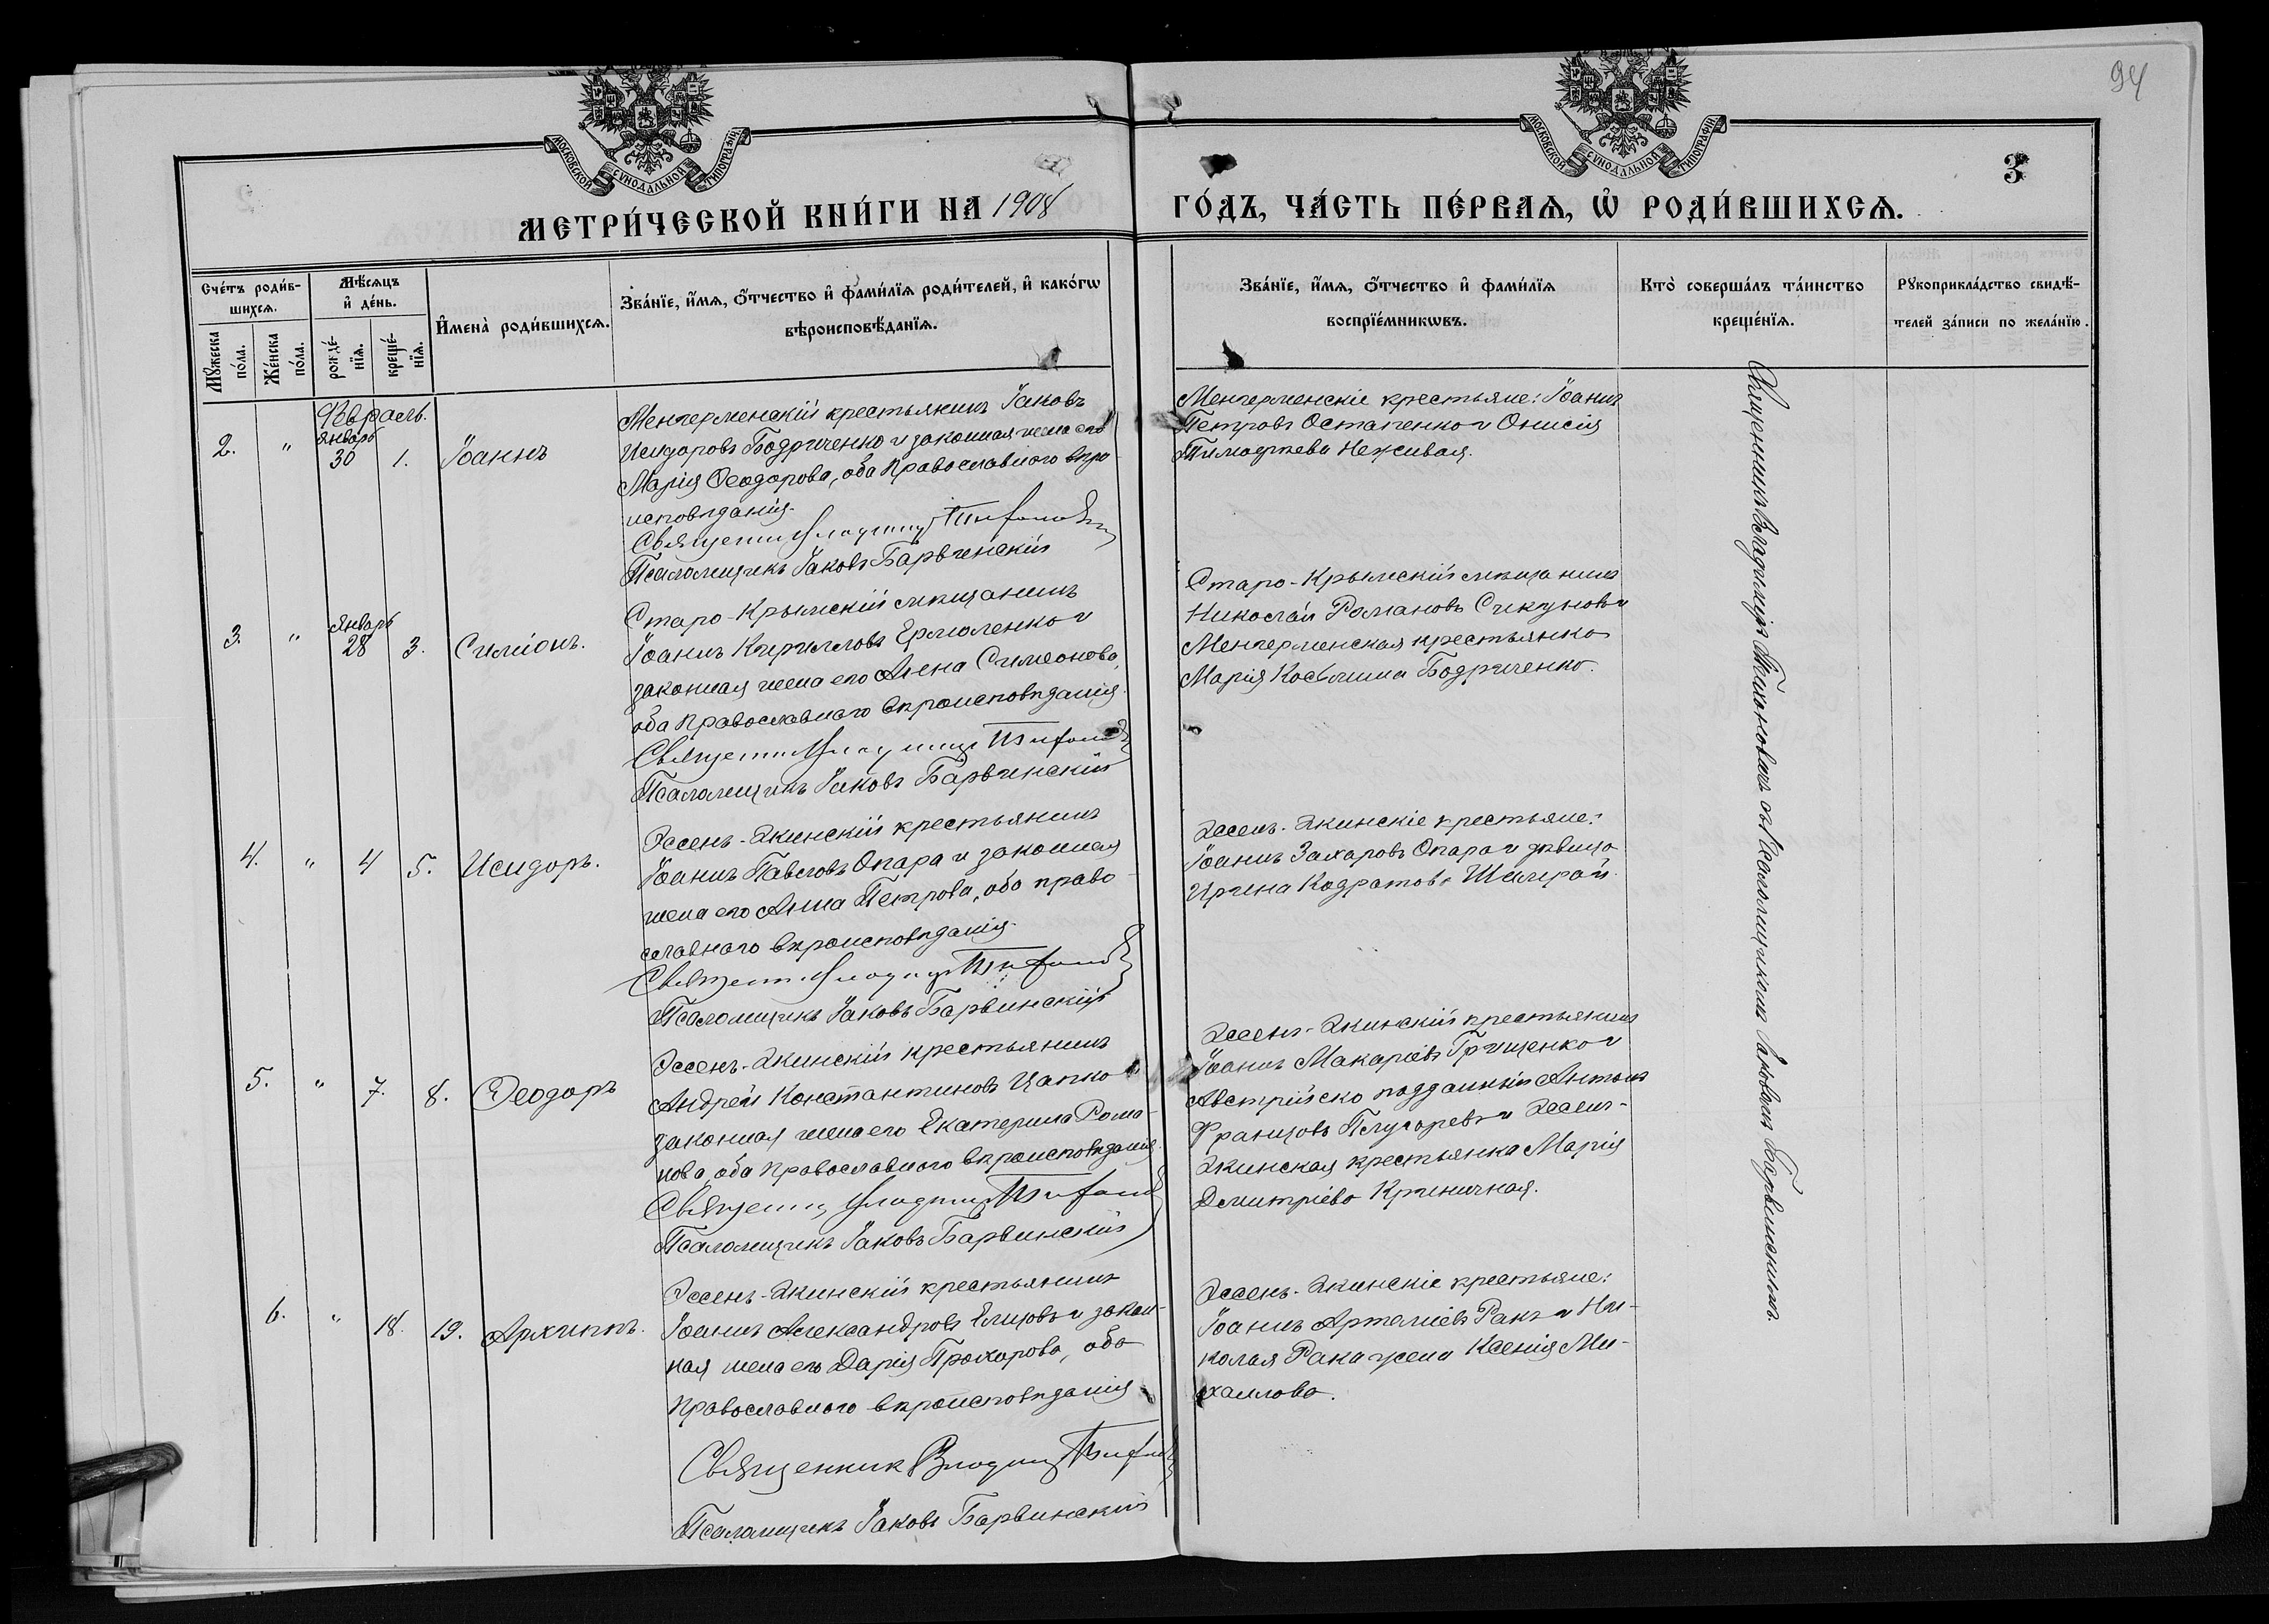 94
МОСКОВСКОЙ СѴНОДАЛЬНОЙ ТИПОГРАФІИ
МОСКОВСКОЙ СѴНОДАЛЬНОЙ ТИПОГРАФІИ
3
МЕТРИ́ЧЕСКОЙ КНИ́ГИ НА 1908 ГО́ДЪ, ЧА́СТЬ ПЕ́РВАѦ, Ѡ҆ РОДИ́ВШИХСѦ.
Сче́тъ роди́вшихсѧ.
Мꙋ́жеска по́ла.
Же́нска по́ла.
Мѣ́сѧцъ и҆ де́нь.
рожде́нїѧ.
креще́нїѧ.
И҆мена̀ роди́вшихсѧ.
Зва́нїе, и҆́мѧ, ѻ҆́тчество и҆ фами́лїѧ роди́телей, и҆ како́гѡ
вѣроисповѣ́данїѧ.
Зва́нїе, и҆́мѧ, ѻ҆́тчество и҆ фами́лїѧ
воспрїе́мникѡвъ.
Кто̀ соверша́лъ та́инство
креще́нїѧ.
Рꙋкоприкла́дство свидѣ́-
телей за́писи по жела́нїю.
Февраль.
2. " Январь 30 1. Іоаннъ
Менгерменскій крестьянинъ Іаковъ
Исидоровъ Бодриченко и законная жена его
Марія Ѳеодорова, оба православнаго вѣро-
исповѣданія.
Священникъ Владиміръ
Псаломщикъ Іаковъ Барвинскій
Менгерменскіе крестьяне: Іоаннъ
Петровъ Остапенко и Онисія
Тимоѳеева Неживая.
3. " Январь 28 3. Симеонъ.
Старо-Крымскій мѣщанинъ
Іоаннъ Кирилловъ Ермоленко и
законная жена его Анна Симеонова,
оба православнаго вѣроисповѣданія.
Священникъ Владиміръ
Псаломщикъ Іаковъ Барвинскій
Старо-Крымскій мѣщанинъ
Николай Романовъ Сикуновъ и
Менгерменская крестьянка
Марія Косьмина Бодриченко.
4. " 4 5. Исидоръ.
Эссенъ-Экинскій крестьянинъ
Іоаннъ Павловъ Опара и законная
жена его Анна Петрова, оба право-
славнаго вѣроисповѣданія.
Священникъ Владиміръ
Псаломщикъ Іаковъ Барвинскій
Эссенъ-Экинскіе крестьяне:
Іоаннъ Захаровъ Опара и дѣвица
Ирина Кодратова
5. " 7. 8. Ѳеодоръ
Эссенъ-Экинскій крестьянинъ
Андрей Константиновъ Цапко и
законная жена его Екатерина Рома-
нова, оба православнаго вѣроисповѣданія.
Священникъ Владиміръ
Псаломщикъ Іаковъ Барвинскій
Эссенъ-Экинскій крестьянинъ
Іоаннъ Макаріевъ Грищенко и
Австрійско подданный Антонъ
Францовъ и Эссенъ-
Экинская крестьянка Марія
Димитріева Криничная.
6. " 18. 19. Архиппъ.
Эссенъ-Экинскій крестьянинъ
Іоаннъ Александровъ и закон-
ная жена его Дарія Прохорова, оба
православнаго вѣроисповѣданія
Священникъ Владиміръ
Псаломщикъ Іаковъ Барвинскій
Эссенъ-Экинскіе крестьяне:
Іоаннъ Артеміевъ Ракъ и Ни-
колая Рака жена Ксенія Ми-
хаилова.
Священникъ Владиміръ съ Псаломщикомъ Іаковомъ Барвинскимъ.